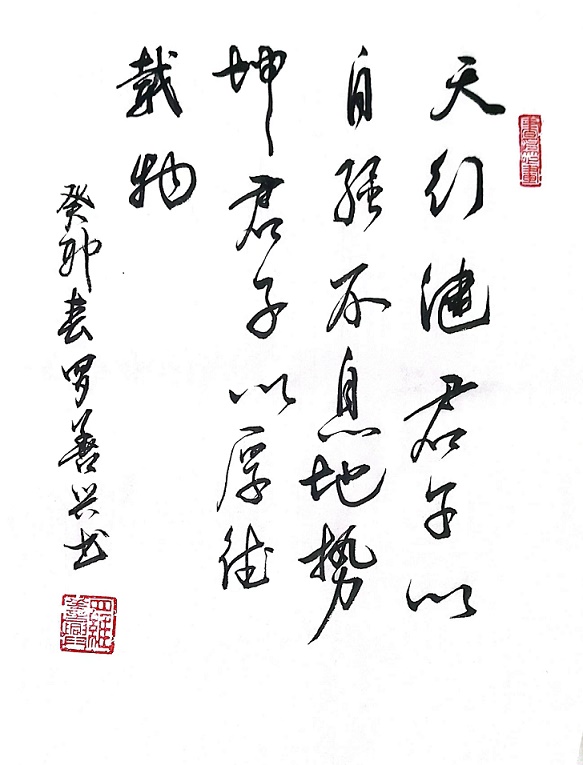 天行健君子以
自强不息地势
坤君子以厚德
载物
癸卯春罗善兴书